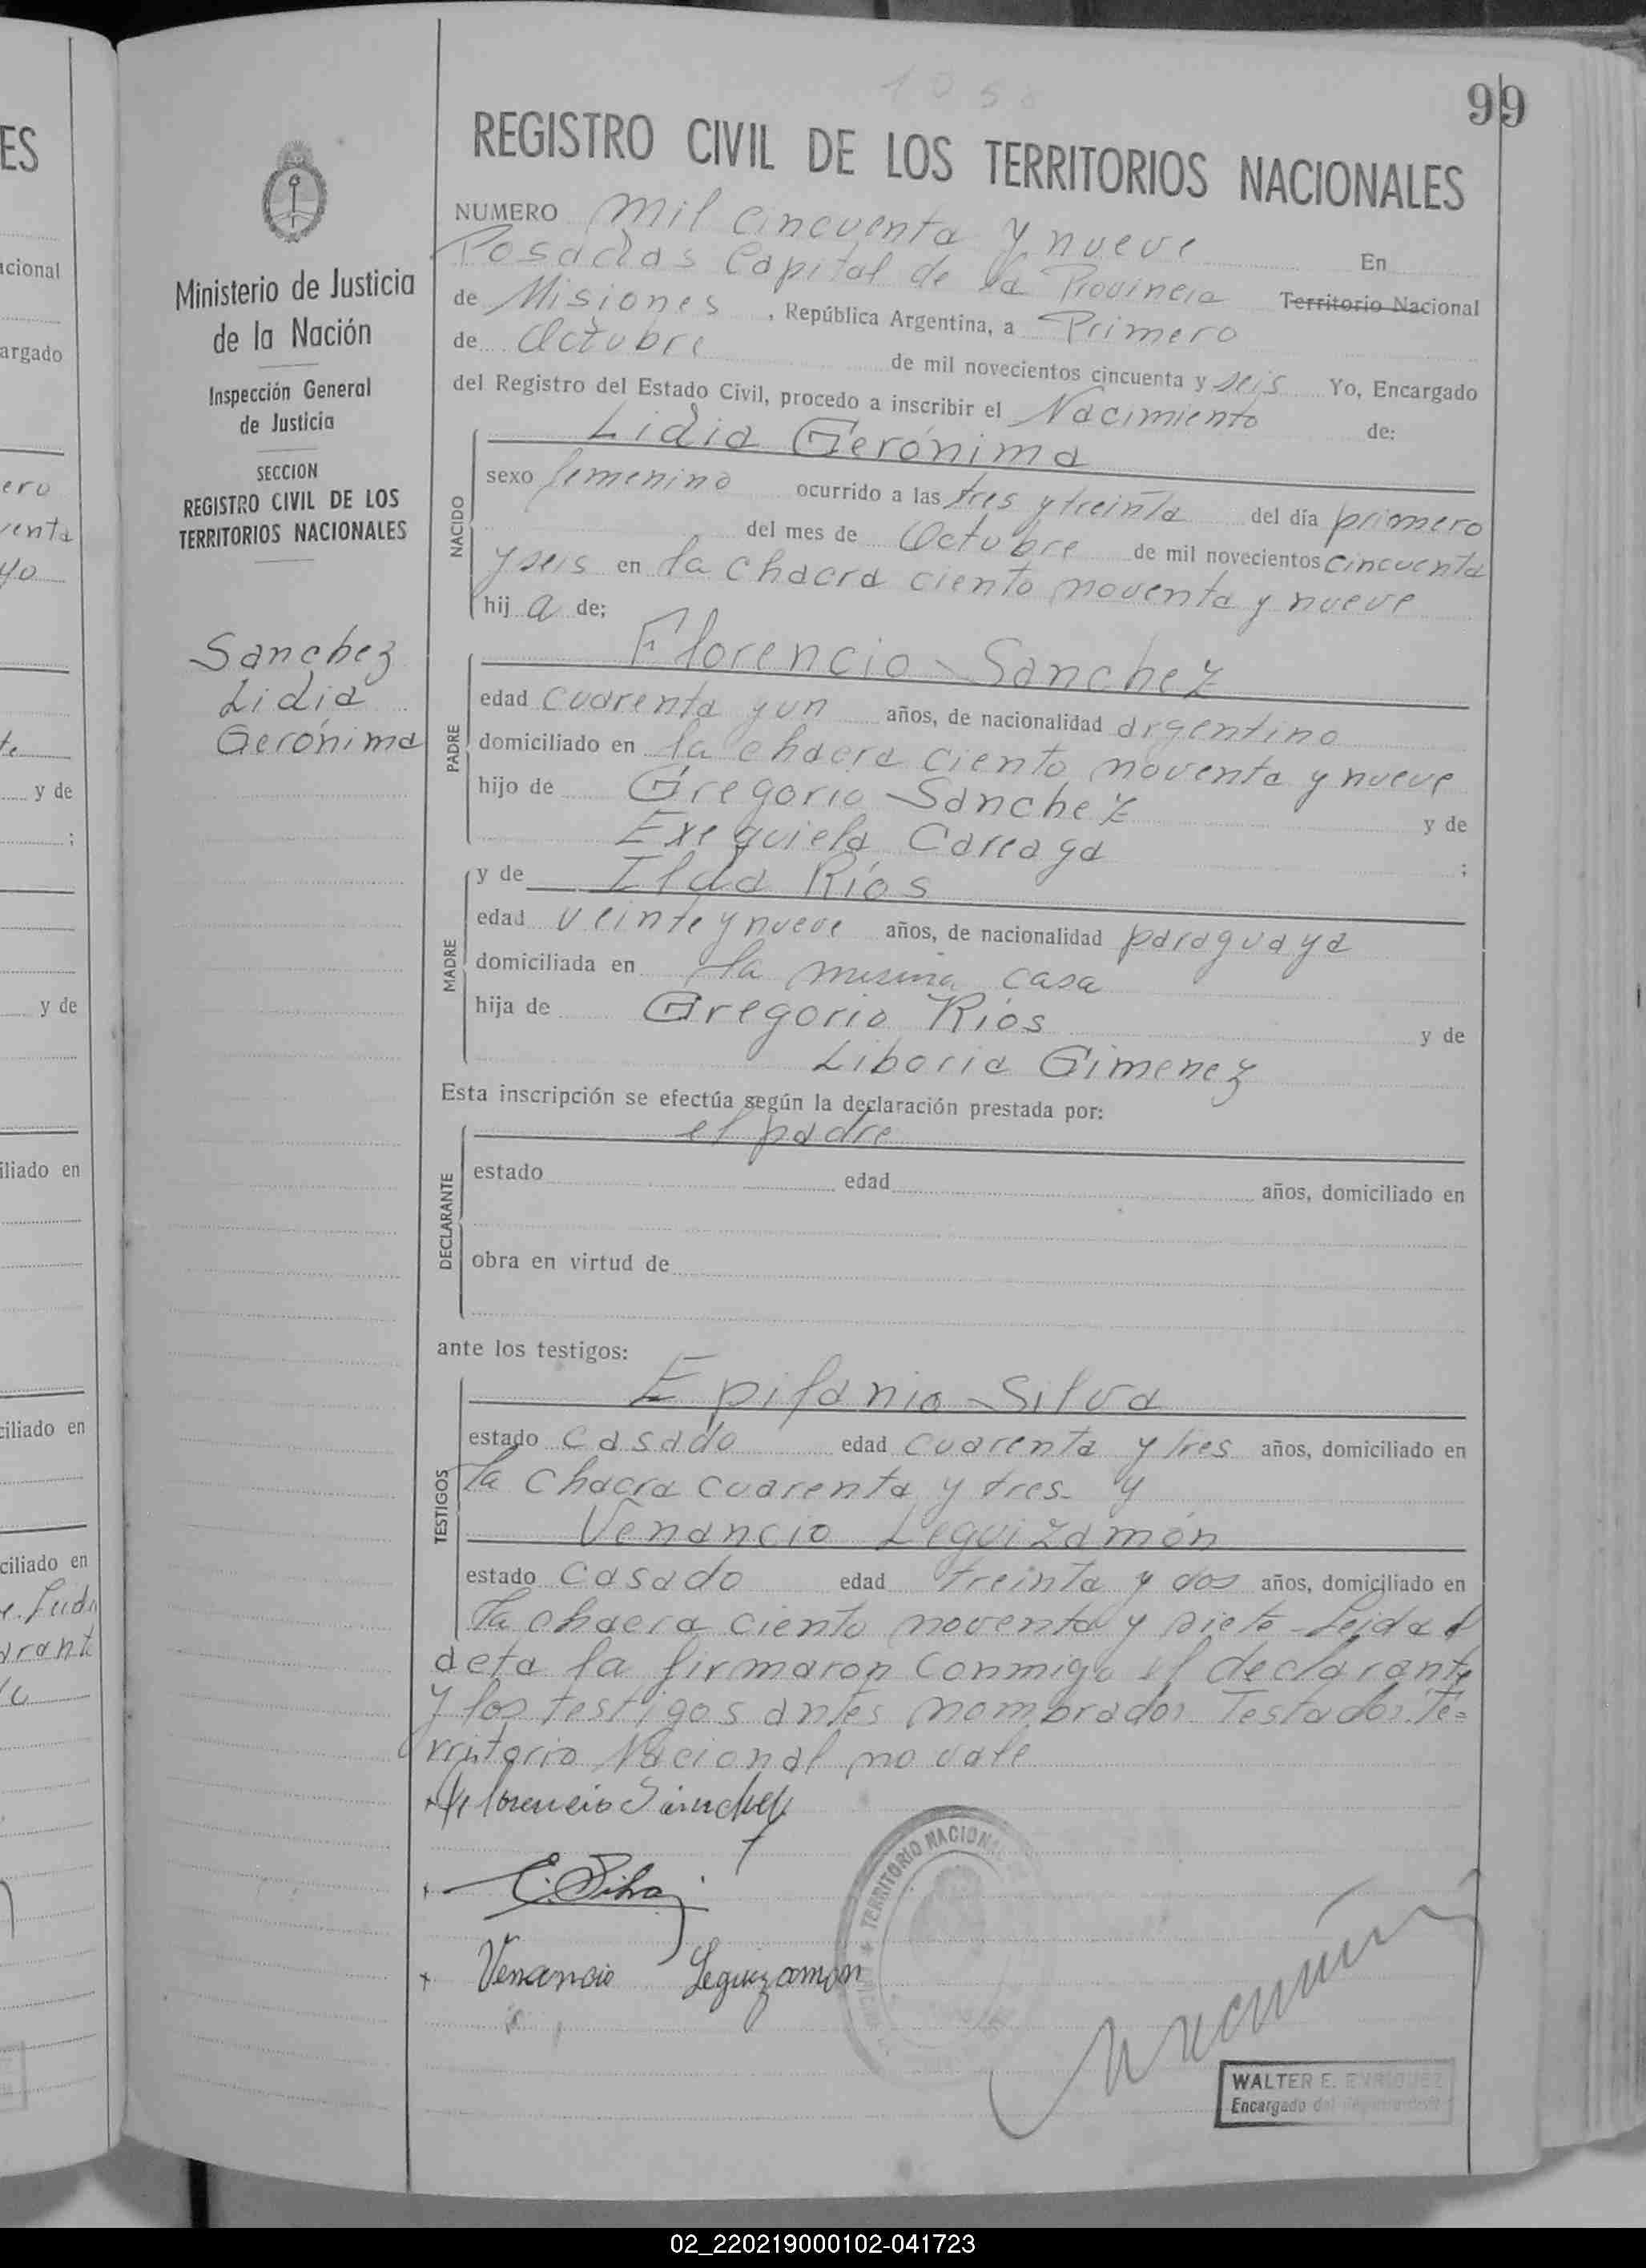 99
REGISTRO CIVIL DE LOS TERRITORIOS NACIONALES
NUMERO mil cincuenta y nueve En
Posadas Capital de la Provincia Territorio Nacional
de Misiones, República Argentina, a Primero
de Octubre de mil novecientos cincuenta y seis Yo, Encargado
del Registro del Estado Civil, procedo a inscribir el Nacimiento de:
NACIDO
Lidia Gerónima
sexo femenino ocurrido a las tres y treinta del día primero
del mes de Octubre de mil novecientos cincuenta
y seis en la chacra ciento noventa y nueve
hij a de;
PADRE
Florencio Sanchez
edad cuarenta y un años, de nacionalidad argentino
domiciliado en la chacra ciento noventa y nueve
hijo de Gregorio Sanchez y de
Exequiela Careaga ;
MADRE
y de Ilda Ríos
edad veinte y nueve años, de nacionalidad paraguaya
domiciliada en la misma casa
hija de Gregorio Ríos y de
Liboria Gimenez
Esta inscripción se efectúa según la declaración prestada por:
DECLARANTE
el padre
estado edad años, domiciliado en
obra en virtud de
ante los testigos:
TESTIGOS
Epifanio Silva
estado casado edad cuarenta y tres años, domiciliado en
la chacra cuarenta y tres- y
Venancio Leguizamón
estado casado edad treinta y dos años, domiciliado en
la chacra ciento noventa y siete - Leida el
acta la firmaron conmigo el declarante
y los testigos antes nombrados Testados: Te=
rritorio Nacional no vale
Florencio Sanchez
E. Silva
Venancio Leguizamon
TERRITORIO NACIONAL
WALTER E. ENRIQUEZ
Encargado del Registro Civil
Ministerio de Justicia
de la Nación
Inspección General
de Justicia
SECCION
REGISTRO CIVIL DE LOS
TERRITORIOS NACIONALES
Sanchez
Lidia
Gerónima
ES
acional
argado
ero
venta
yo
te
y de
;
y de
iliado en
ciliado en
ciliado en
02_220219000102-041723